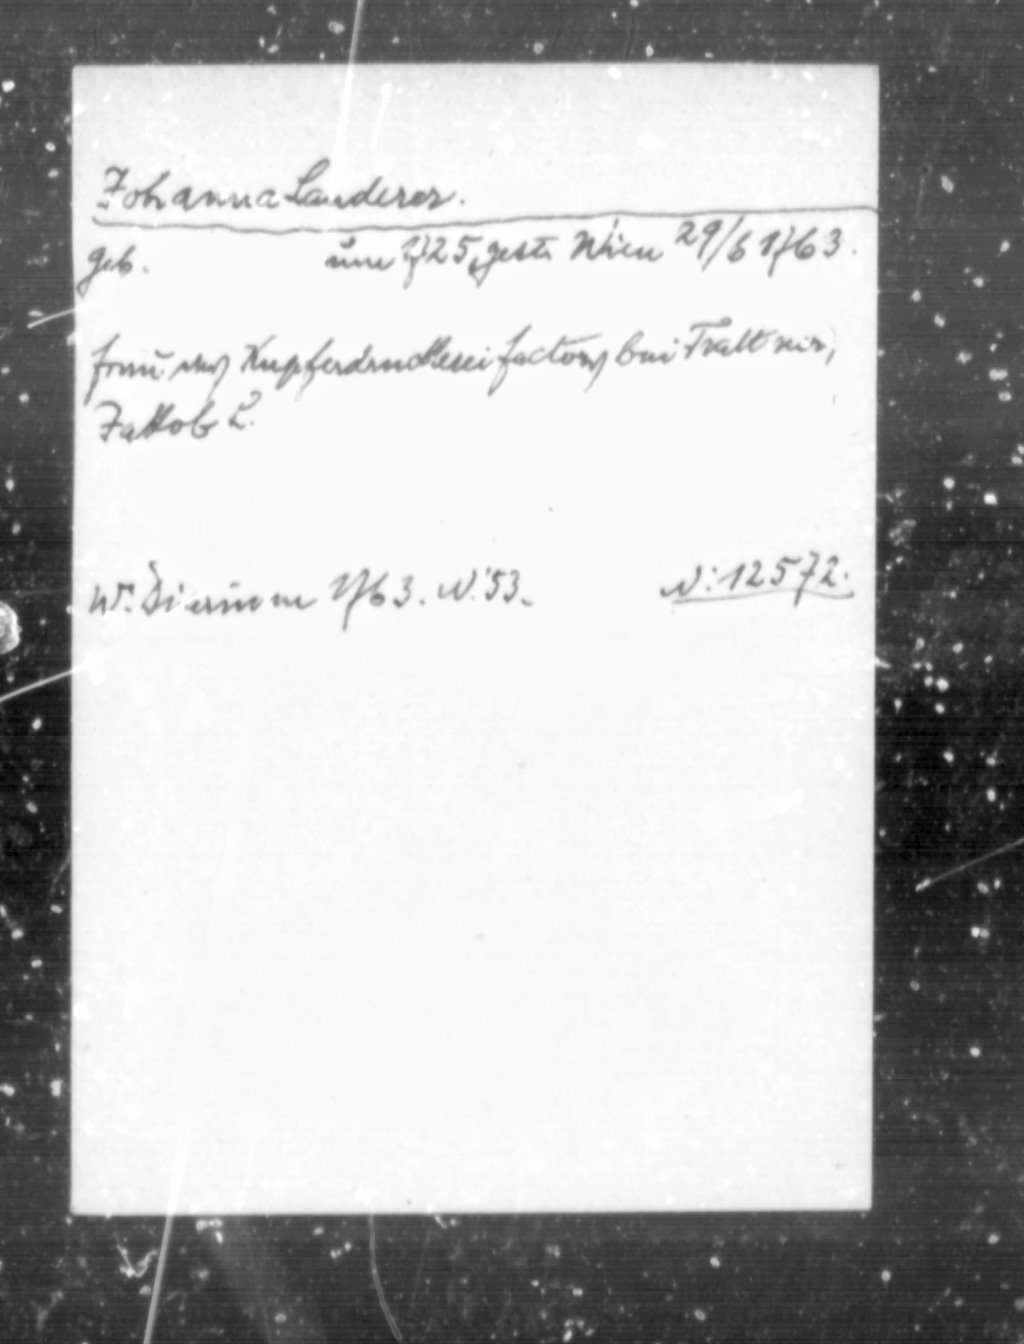 Johanna Landerer.
geb. um 1725, gest. Wien 29/6 1763.
Frau des Kupferdruckereifactors bei Trattner,
Jakob L.
W. Diarium 1763. N. 53. N: 12572.